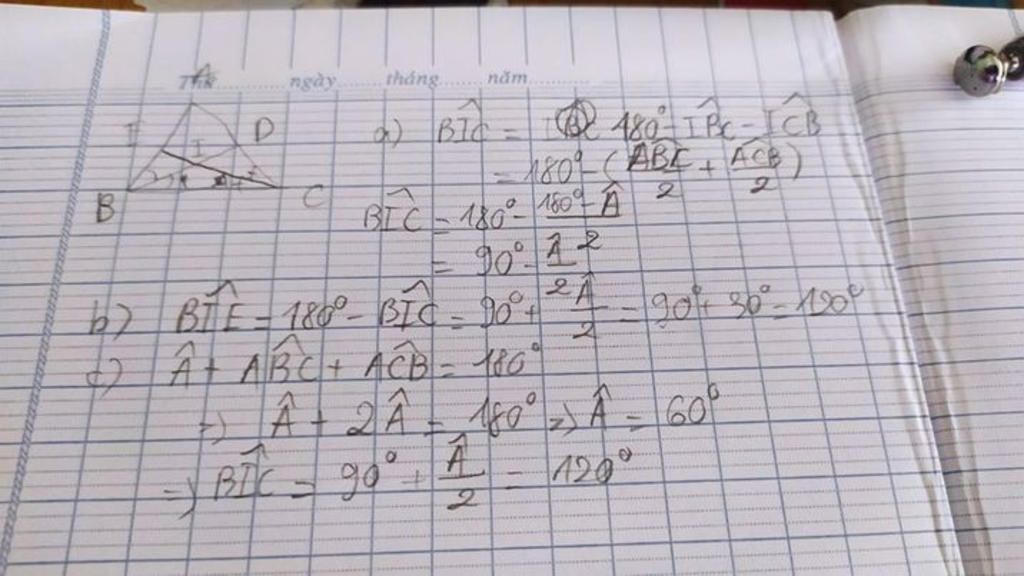 Thứ ngày tháng năm
A
E
I
D
B
C
a) BIC = 180° - IBC - ICB
= 180° - (ABC/2 + ACB/2)
BIC = 180° - (180° - Â)/2
= 90° - Â/2
b) BIE = 180° - BIC = 90° + Â/2 = 90° + 30° = 120°
c) Â + ABC + ACB = 180°
=> Â + 2Â = 180° => Â = 60°
=> BIC = 90° + Â/2 = 120°